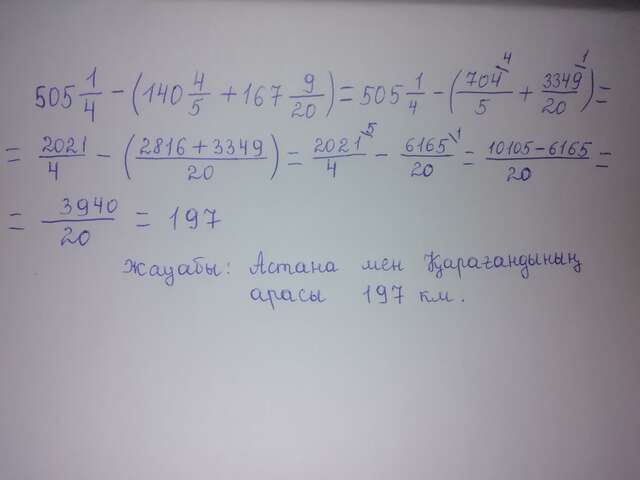 505 1/4 − (140 4/5 + 167 9/20) = 505 1/4 − (704\4/5 + 3349\1/20) =
= 2021/4 − (2816 + 3349/20) = 2021\5/4 − 6165\1/20 = 10105 − 6165/20 =
= 3940/20 = 197
Жауабы: Астана мен Қарағандының
арасы 197 км.